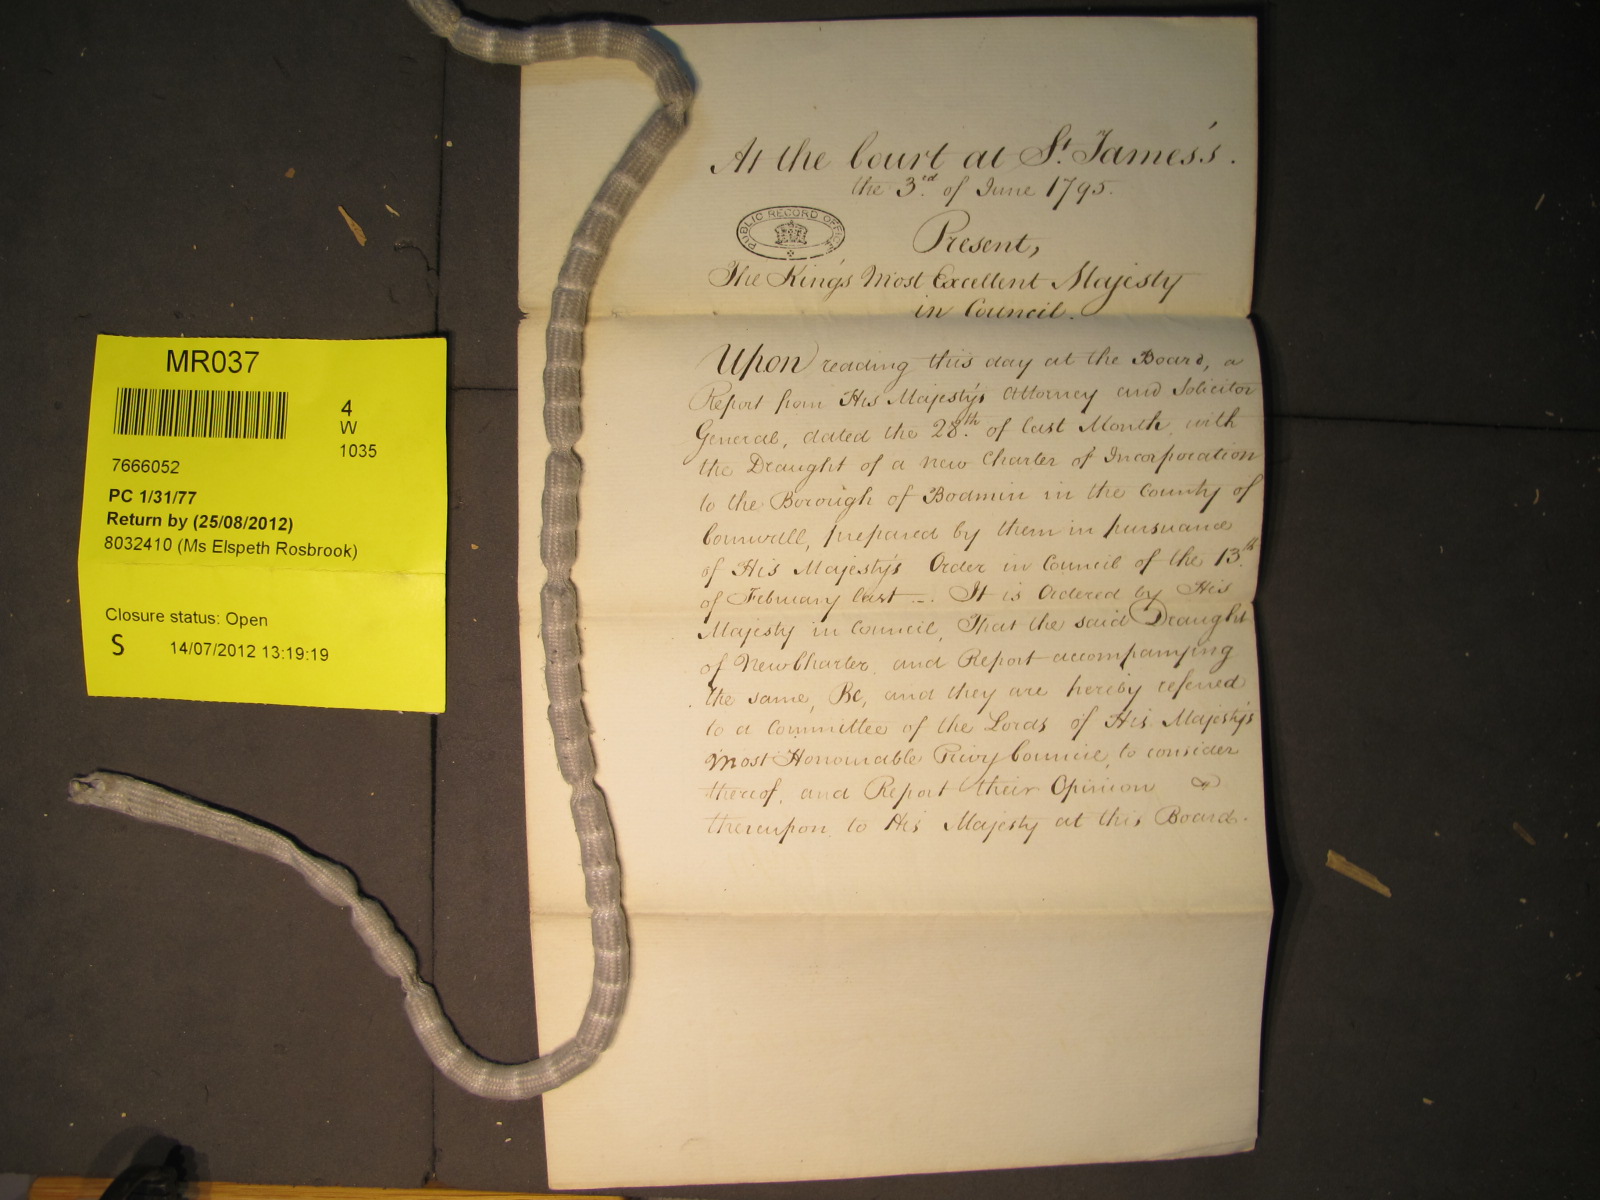 MR037
4
W
1035
7666052
PC 1/31/77
Return by (25/08/2012)
8032410 (Ms Elspeth Rosbrook)
Closure status: Open
S 14/07/2012 13:19:19
At the Court at St. James's.
the 3.rd of June 1795.
PUBLIC RECORD OFFICE
Present,
The King's Most Excellent Majesty
in Council.
Upon reading this day at the Board, a
Report from His Majesty's Attorney and Solicitor
General, dated the 28.th of last Month, with
the Draught of a new Charter of Incorporation
to the Borough of Bodmin in the County of
Cornwall, prepared by them in pursuance
of His Majesty's Order in Council of the 13.th
of February last ... It is Ordered by His
Majesty in Council, That the said Draught
of New Charter, and Report accompanying
the same, Be, and they are hereby referred
to a Committee of the Lords of His Majesty's
Most Honourable Privy Council, to consider
thereof, and Report their Opinion
thereupon to His Majesty at this Board.